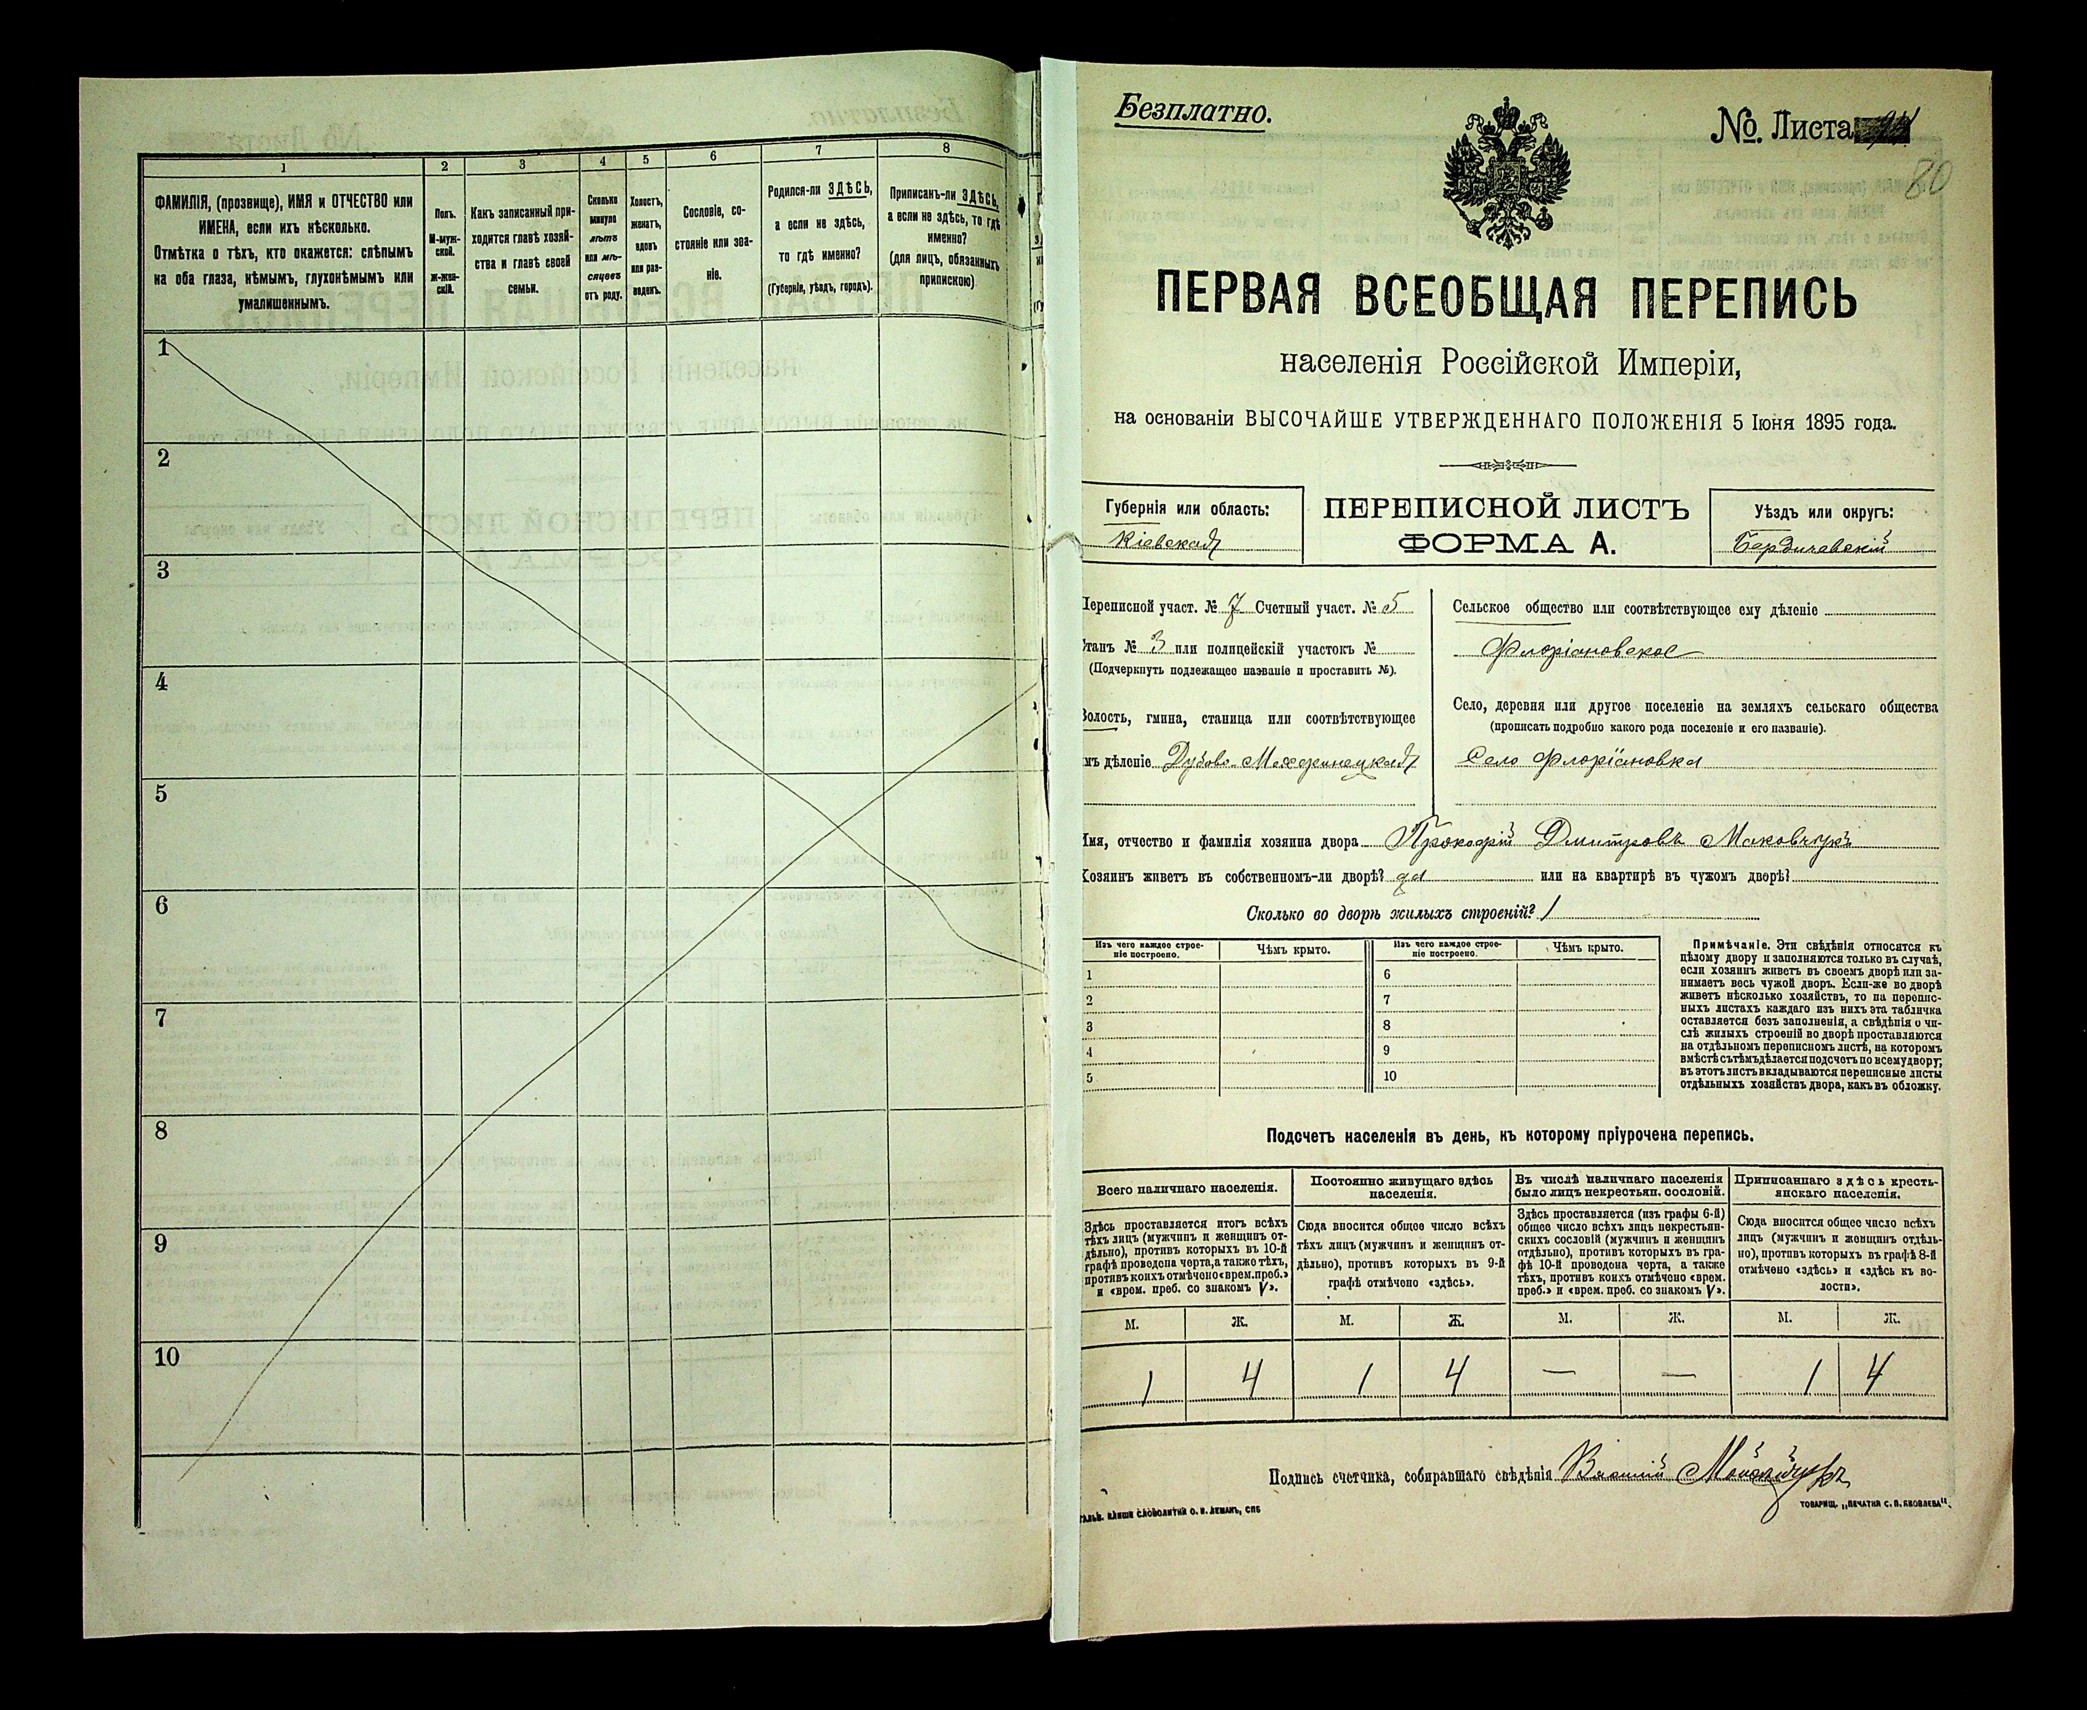 1
2
3
4
5
6
7
8
ФАМИЛІЯ, (прозвище), ИМЯ и ОТЧЕСТВО или
ИМЕНА, если ихъ нѣсколько.
Отмѣтка о тѣхъ, кто окажется: слѣпымъ
на оба глаза, нѣмымъ, глухонѣмымъ или
умалишеннымъ.
Полъ.
М-муж-
ской.
Ж-жен-
скій.
Какъ записанный при-
ходится главѣ хозяй-
ства и главѣ своей
семьи.
Сколько
минуло
лѣтъ
или мѣ-
сяцевъ
отъ роду.
Холостъ,
женатъ,
вдовъ
или раз-
веденъ.
Сословіе, со-
стояніе или зва-
ніе.
Родился-ли ЗДѢСЬ,
а если не здѣсь,
то гдѣ именно?
(Губернія, уѣздъ, городъ).
Приписанъ-ли ЗДѢСЬ,
а если не здѣсь, то гдѣ
именно?
(для лицъ, обязанныхъ
припискою)
1
2
3
4
5
6
7
8
9
10
Безплатно.
№. Листа
80
ПЕРВАЯ ВСЕОБЩАЯ ПЕРЕПИСЬ
населенія Россійской Имперіи,
на основаніи ВЫСОЧАЙШЕ УТВЕРЖДЕННАГО ПОЛОЖЕНІЯ 5 Іюня 1895 года.
Губернія или область:
Кіевская
ПЕРЕПИСНОЙ ЛИСТЪ
ФОРМА А.
Уѣздъ или округъ:
Бердичевскій
Переписной участ. № 7 Счетный участ. № 5
Станъ № 3 или полицейскій участокъ №
(Подчеркнуть подлежащее названіе и проставить №).
Волость, гмина, станица или соотвѣтствующее
имъ дѣленіе Дубово-Махаринецкая
Сельское общество или соотвѣтствующее ему дѣленіе
Флоріановское
Село, деревня или другое поселеніе на земляхъ сельскаго общества
(прописать подробно какого рода поселеніе и его названіе).
Село Флоріановка
Имя, отчество и фамилія хозяина двора Прокофій Дмитровъ Маковчукъ
Хозяинъ живетъ въ собственномъ-ли дворѣ? да или на квартирѣ въ чужомъ дворѣ?
Сколько во дворѣ жилыхъ строеній? 1
Изъ чего каждое строе-
ніе построено.
Чѣмъ крыто.
Изъ чего каждое строе-
ніе построено.
Чѣмъ крыто.
1
2
3
4
5
6
7
8
9
10
Примѣчаніе. Эти свѣдѣнія относятся къ
цѣлому двору и заполняются только въ случаѣ,
если хозяинъ живетъ въ своемъ дворѣ или за-
нимаетъ весь чужой дворъ. Если-же во дворѣ
живетъ нѣсколько хозяйствъ, то на перепис-
ныхъ листахъ каждаго изъ нихъ эта табличка
оставляется безъ заполненія, а свѣдѣнія о чи-
слѣ жилыхъ строеній во дворѣ проставляются
на отдѣльномъ переписномъ листѣ, на которомъ
вмѣстѣ съ тѣмъ дѣлается подсчетъ по всему двору;
въ этотъ листъ вкладываются переписные листы
отдѣльныхъ хозяйствъ двора, какъ въ обложку.
Подсчетъ населенія въ день, къ которому пріурочена перепись.
Всего наличнаго населенія.
Постоянно живущаго здѣсь
населенія.
Въ числѣ наличнаго населенія
было лицъ некрестьян. сословій.
Приписаннаго здѣсь кресть-
янскаго населенія.
Здѣсь проставляется итогъ всѣхъ
тѣхъ лицъ (мужчинъ и женщинъ от-
дѣльно), противъ которыхъ въ 10-й
графѣ проведена черта, а также тѣхъ,
противъ коихъ отмѣчено «врем. преб.»
и «врем. преб. со знакомъ V».
Сюда вносится общее число всѣхъ
тѣхъ лицъ (мужчинъ и женщинъ от-
дѣльно), противъ которыхъ въ 9-й
графѣ отмѣчено «здѣсь».
Здѣсь проставляется (изъ графы 6-й)
общее число всѣхъ лицъ некрестьян-
скихъ сословій (мужчинъ и женщинъ
отдѣльно), противъ которыхъ въ гра-
фѣ 10-й проведена черта, а также
тѣхъ, противъ коихъ отмѣчено «врем.
преб.» и «врем. преб. со знакомъ V».
Сюда вносится общее число всѣхъ
лицъ (мужчинъ и женщинъ отдѣль-
но), противъ которыхъ въ графѣ 8-й
отмѣчено «здѣсь» и «здѣсь къ во-
лости».
М. Ж. М. Ж. М. Ж. М. Ж.
1 4 1 4 — — 1 4
Подпись счетчика, собиравшаго свѣдѣнія
СЛОВОЛИТНИ О. И. ЛЕМАНЪ, СПБ
ТОВАРИЩ. „ПЕЧАТНЯ С. П. ЯКОВЛЕВА".